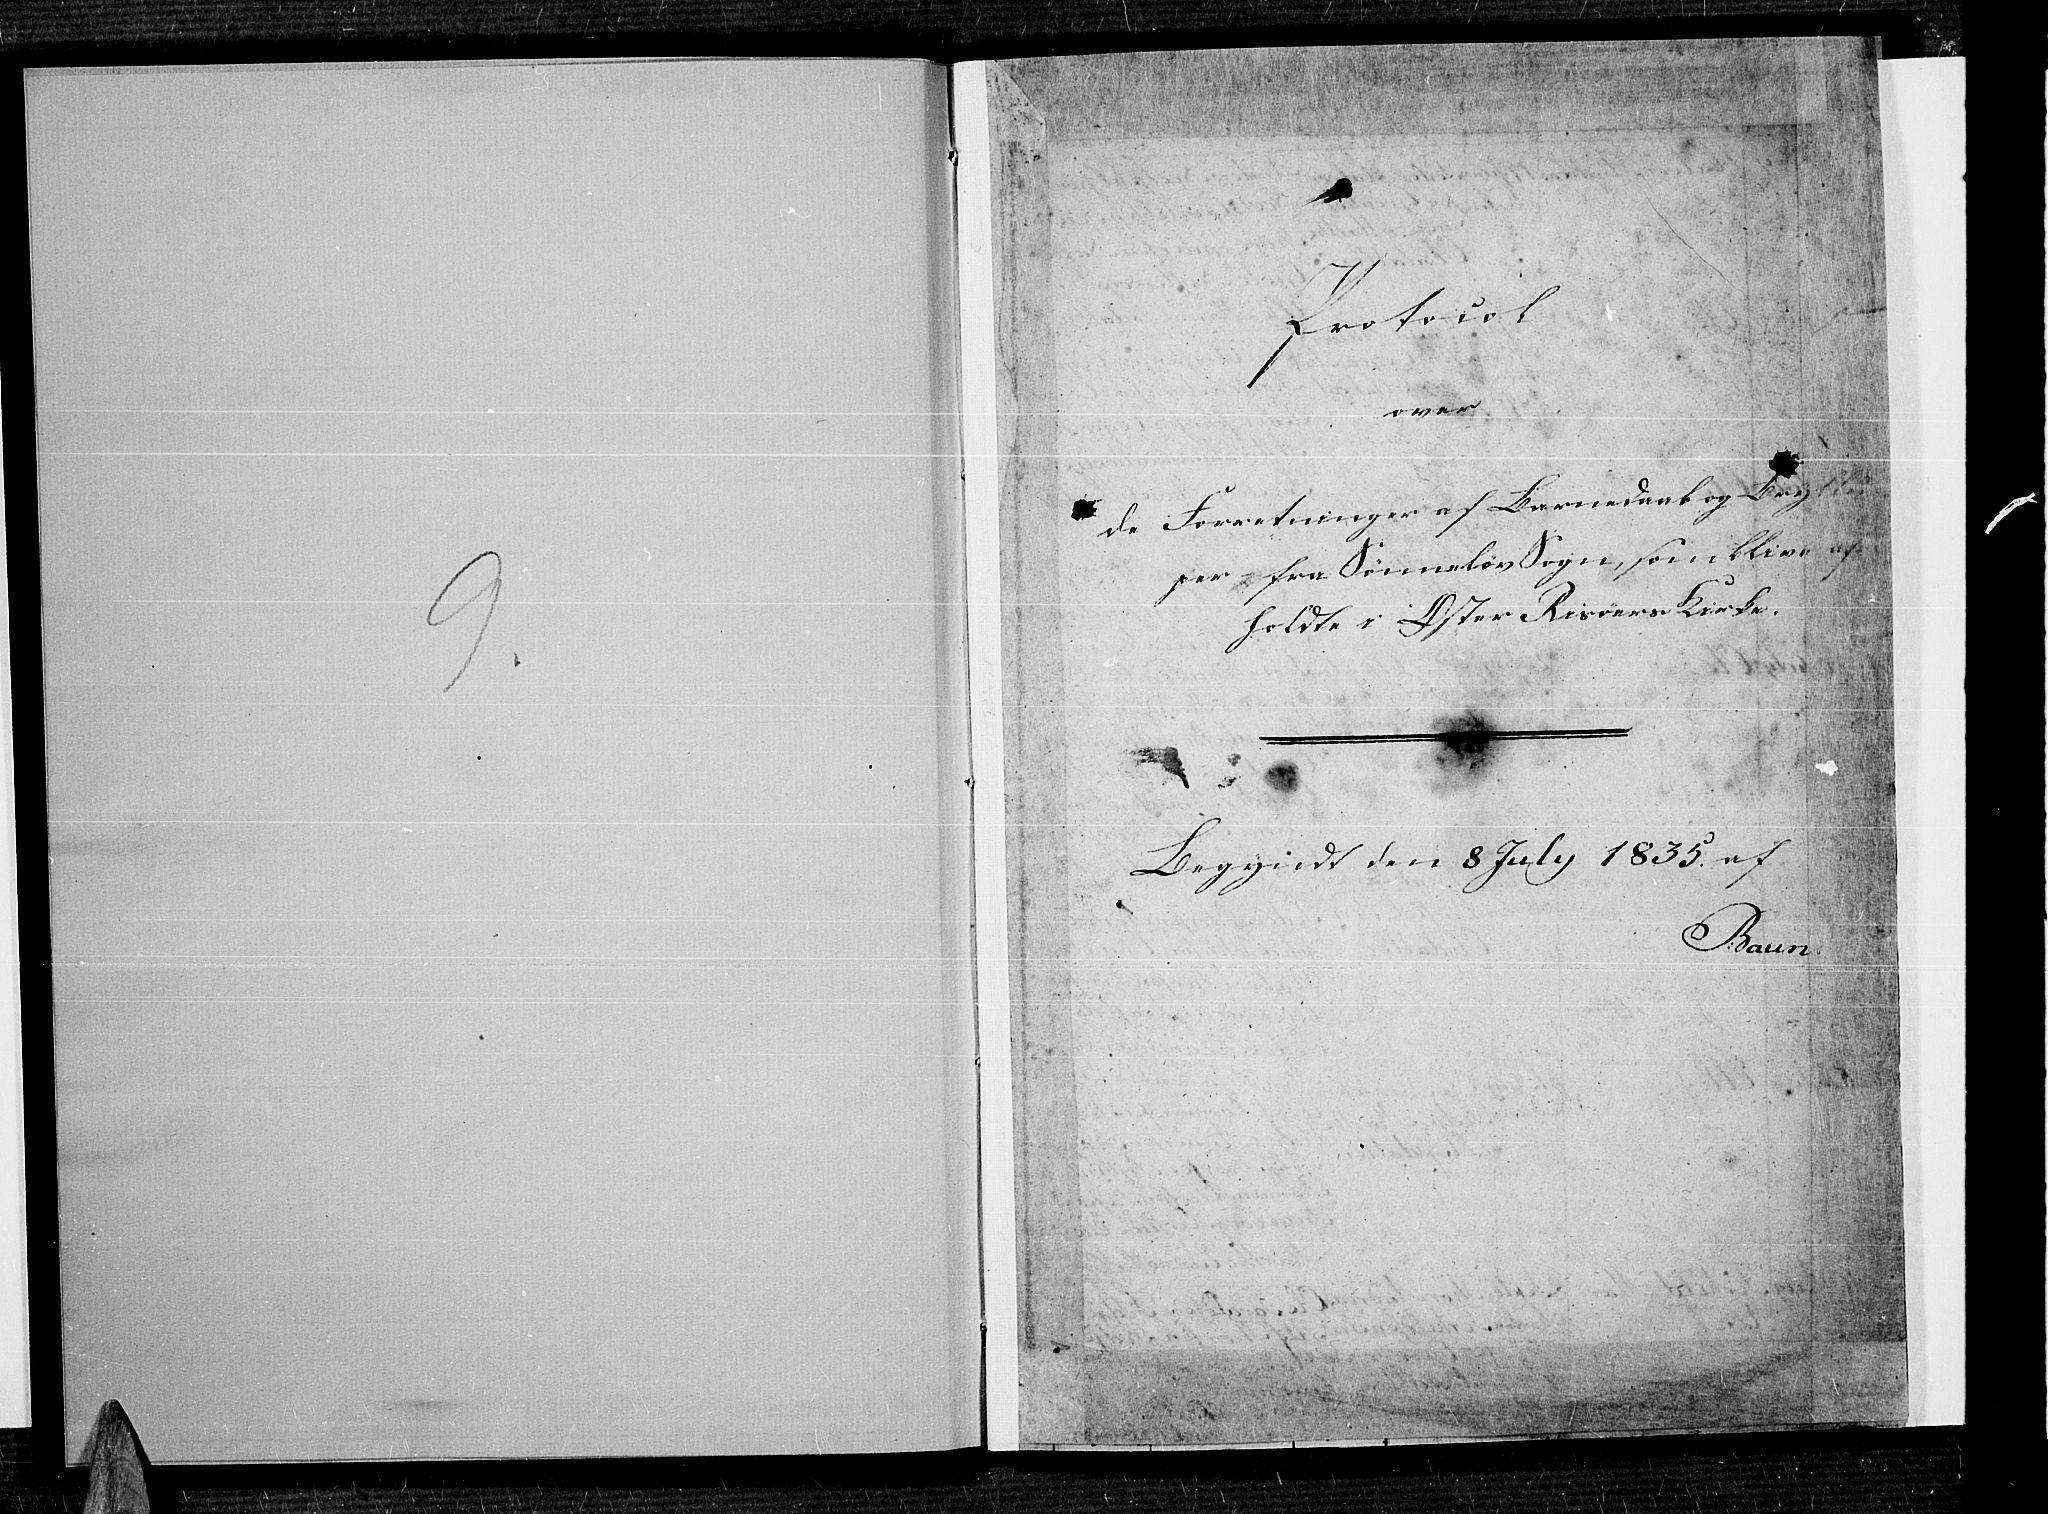 9.
Protocol
over
de Forretninger af Barnedaab og Brylled
per fra Sönneløv Sogn, som blive af
holdte i Øster Risöers Kirke.
Begyndt den 8 July 1835. af
Baun